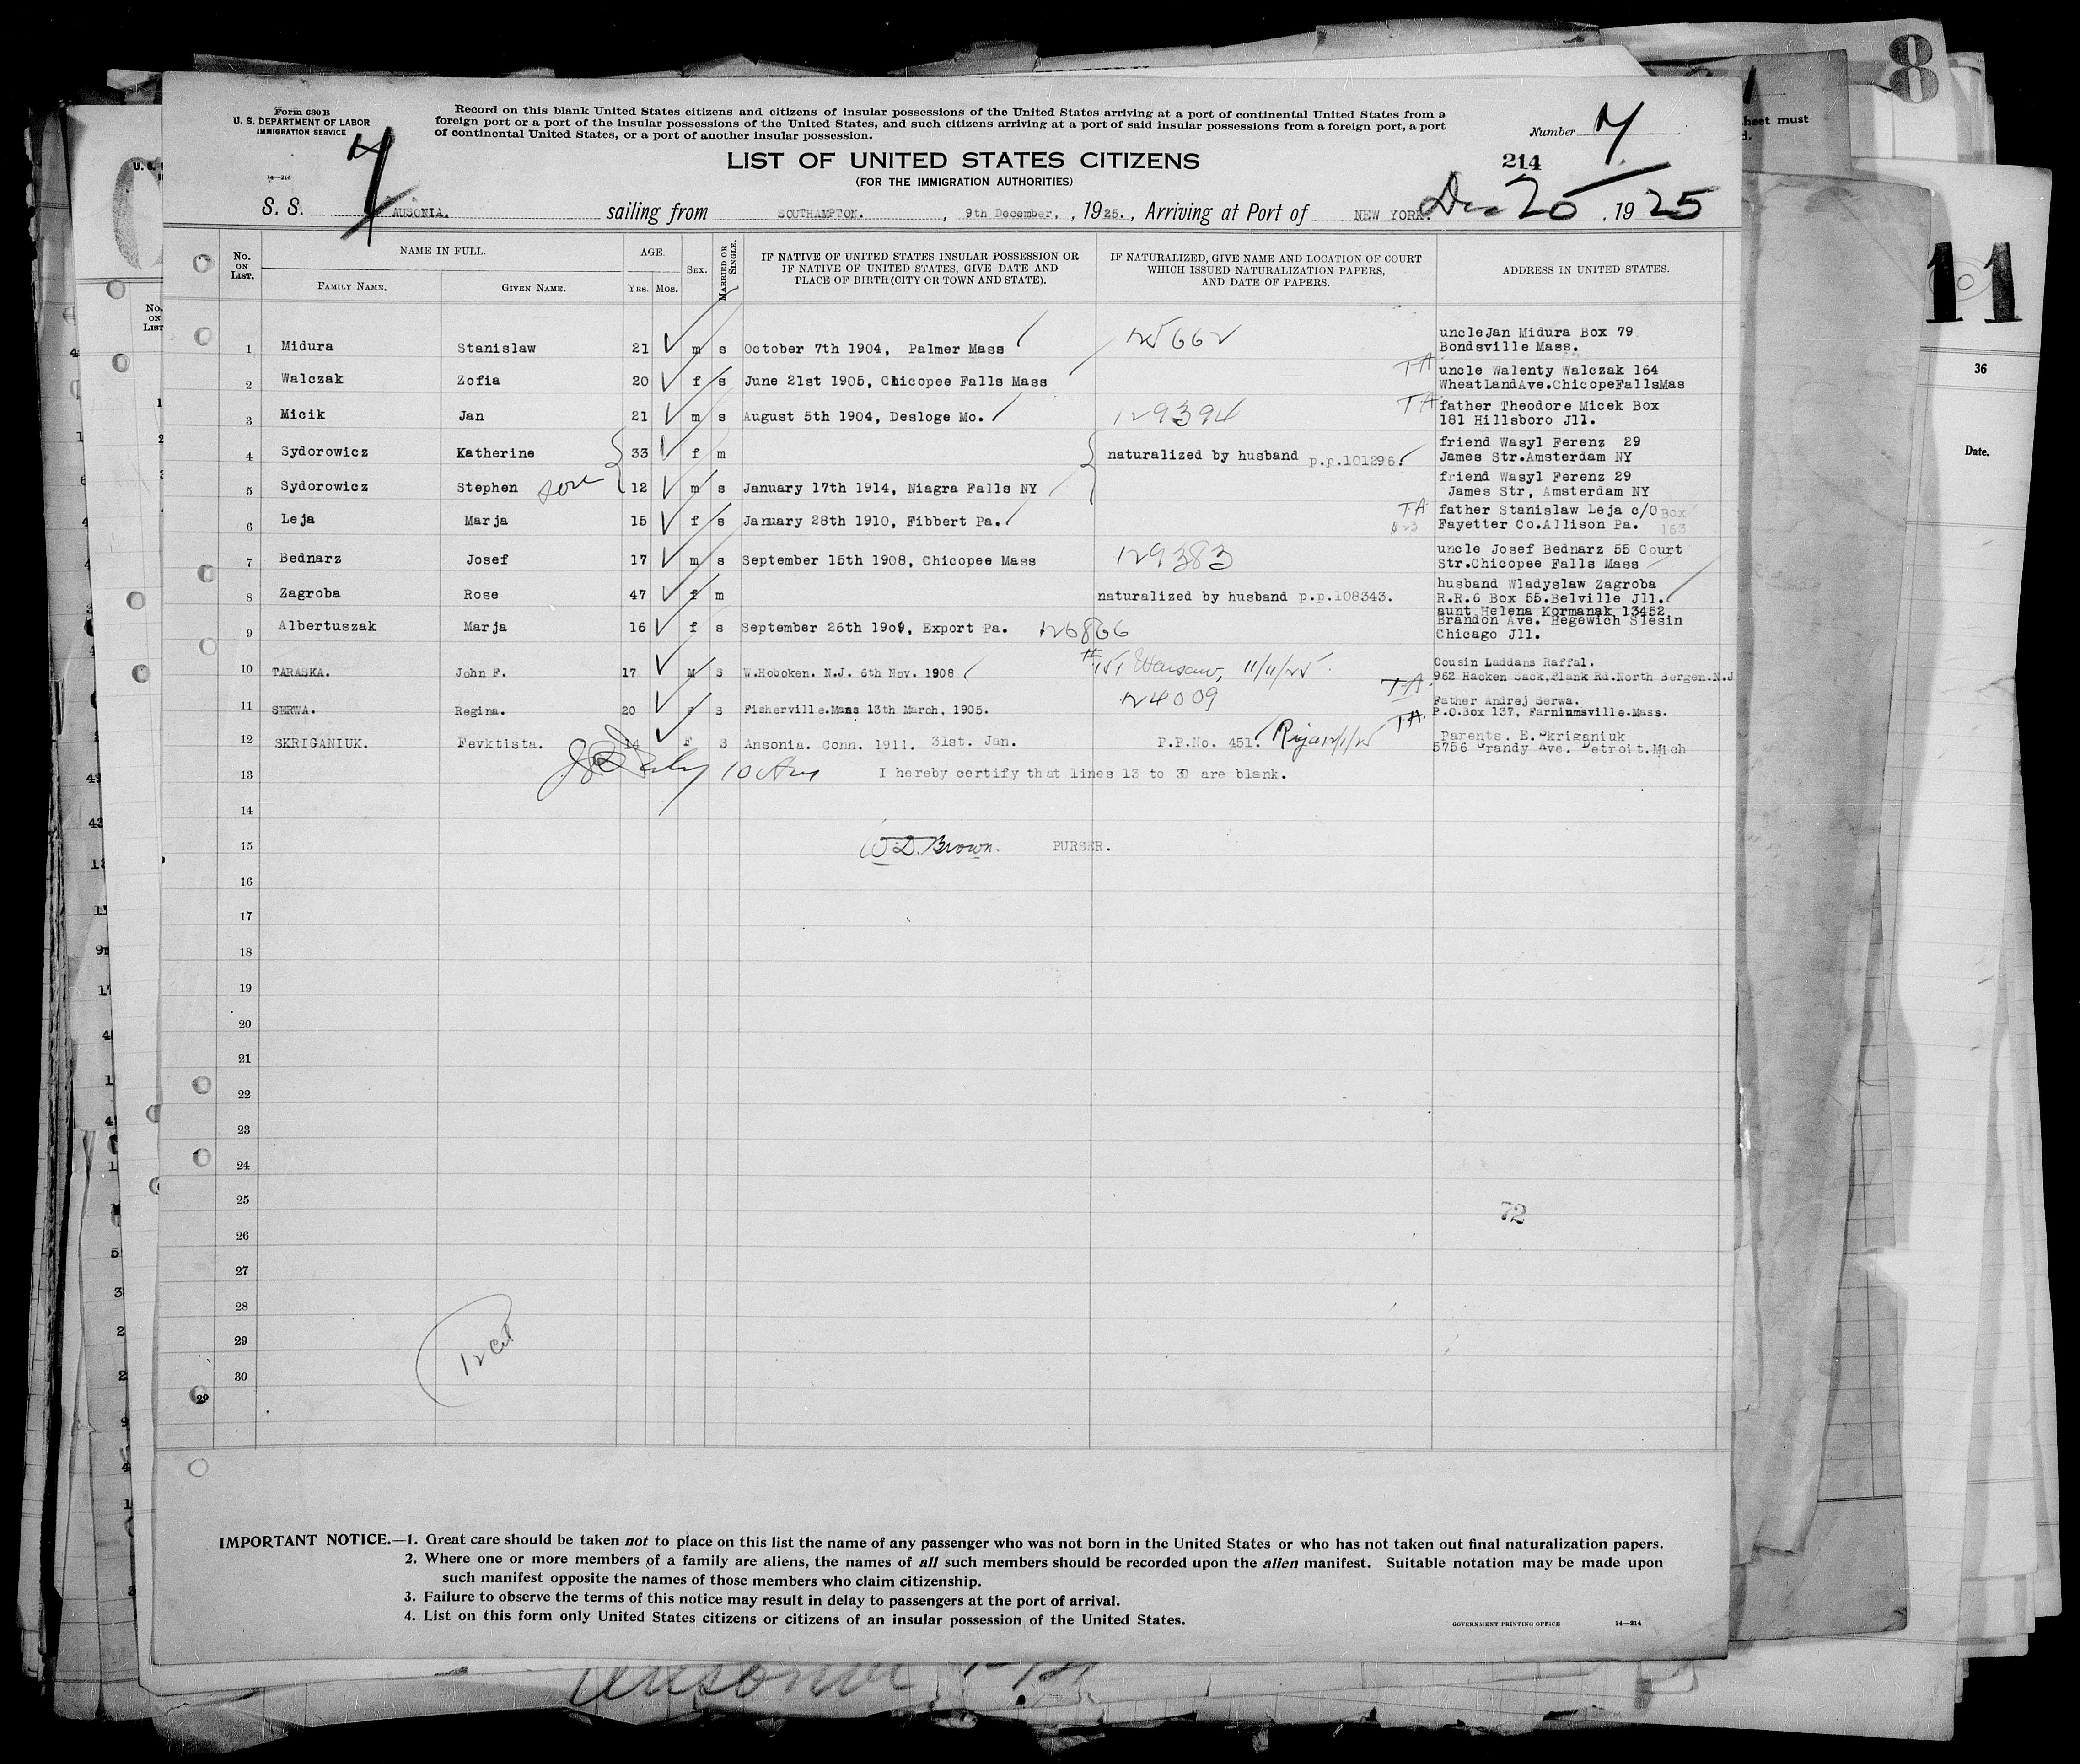 Form 630 B
U. S. DEPARTMENT OF LABOR
IMMIGRATION SERVICE
14—214
Record on this blank United States citizens and citizens of insular possessions of the United States arriving at a port of continental United States from a
foreign port or a port of the insular possessions of the United States, and such citizens arriving at a port of said insular possessions from a foreign port, a port
of continental United States, or a port of another insular possession.
Number 7
LIST OF UNITED STATES CITIZENS
214
(FOR THE IMMIGRATION AUTHORITIES)
S. S. AUSONIA. sailing from SOUTHAMPTON. , 9th December. , 1925. , Arriving at Port of NEW YORK. Dec 20 , 1925
No. ON LIST. NAME IN FULL. AGE. SEX. MARRIED OR SINGLE. IF NATIVE OF UNITED STATES INSULAR POSSESSION OR IF NATIVE OF UNITED STATES, GIVE DATE AND PLACE OF BIRTH (CITY OR TOWN AND STATE). IF NATURALIZED, GIVE NAME AND LOCATION OF COURT WHICH ISSUED NATURALIZATION PAPERS, AND DATE OF PAPERS. ADDRESS IN UNITED STATES.
FAMILY NAME. GIVEN NAME. YRS. MOS.
1 Midura Stanislaw 21 m s October 7th 1904, Palmer Mass 125662 uncleJan Midura Box 79 Bondsville Mass.
2 Walczak Zofia 20 f s June 21st 1905, Chicopee Falls Mass TA uncle Walenty Walczak 164 WheatLandAve.ChicopeFallsMas
3 Micik Jan 21 m s August 5th 1904, Desloge Mo. 129394 TA father Theodore Micek Box 181 Hillsboro Jll.
4 Sydorowicz Katherine 33 f m naturalized by husband p.p.101296. friend Wasyl Ferenz 29 James Str.Amsterdam NY
5 Sydorowicz Stephen son 12 m s January 17th 1914, Niagra Falls NY friend Wasyl Ferenz 29 James Str, Amsterdam NY
6 Leja Marja 15 f s January 28th 1910, Fibbert Pa. TA $23 father Stanislaw Leja c/O Box 163 Fayetter Co.Allison Pa.
7 Bednarz Josef 17 m s September 15th 1908, Chicopee Mass 129383 uncle Josef Bednarz 55 Court Str.Chicopee Falls Mass
8 Zagroba Rose 47 f m naturalized by husband p.p.108343. husband Wladyslaw Zagroba R.R.6 Box 55.Belville Jll.
9 Albertuszak Marja 16 f s September 26th 1909, Export Pa. 126866 aunt Helena Kormanak 13452 Brandon Ave. Hegewich Slesin Chicago Jll.
10 TARASKA. John F. 17 M s W.Hoboken. N.J. 6th Nov. 1908 #151 Warsaw, 11/11/25. Cousin Laddans Raffal. 962 Hacken Sack,Plank Rd.North Bergen.N.J
11 SERWA. Regina. 20 F s Fisherville.Mass 13th March, 1905. 124009 TA Father Andrej Serwa. P.O.Box 137, Farniumsville.Mass.
12 SKRIGANIUK. Fevktista. 14 F S Ansonia. Conn. 1911. 31st. Jan. P.P.No. 451. TA Parents. E.Skriganiuk 5756 Grandy Ave. Detroit.Mich
13 I hereby certify that lines 13 to 30 are blank.
14
15 W.D.Brown. PURSER.
16
17
18
19
20
21
22
23
24
25
72
26
27
28
29
30
29
IMPORTANT NOTICE.—1. Great care should be taken not to place on this list the name of any passenger who was not born in the United States or who has not taken out final naturalization papers.
2. Where one or more members of a family are aliens, the names of all such members should be recorded upon the alien manifest. Suitable notation may be made upon
such manifest opposite the names of those members who claim citizenship.
3. Failure to observe the terms of this notice may result in delay to passengers at the port of arrival.
4. List on this form only United States citizens or citizens of an insular possession of the United States.
GOVERNMENT PRINTING OFFICE 14—214
8
11
36
Date.